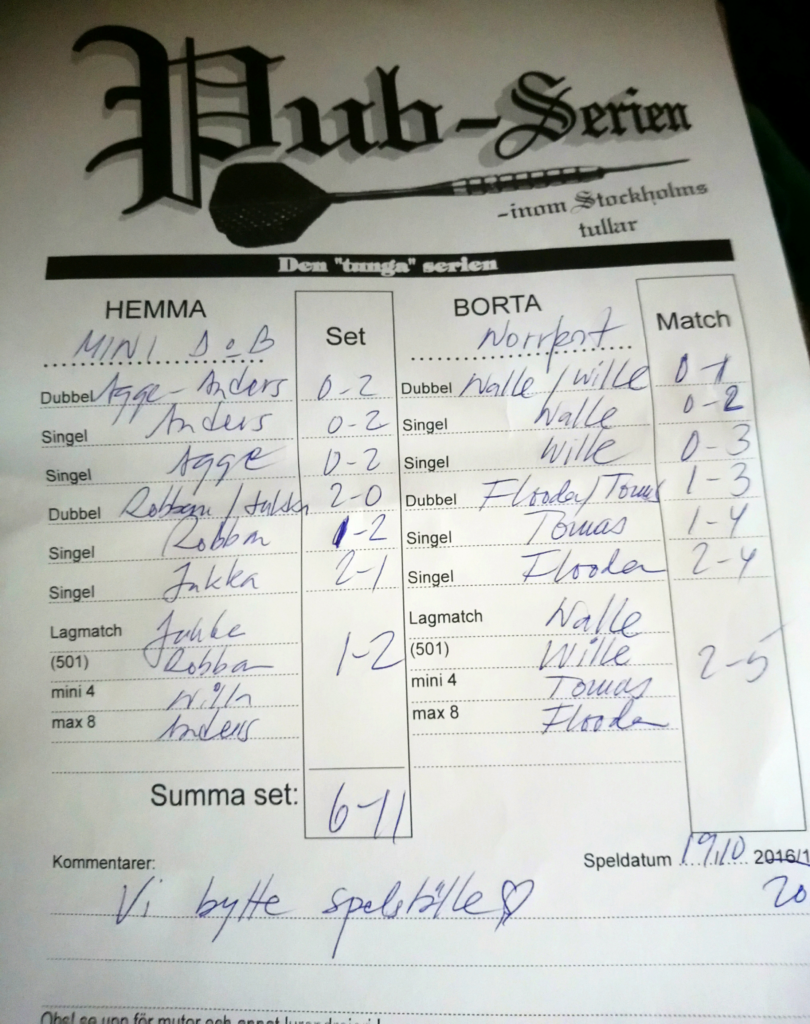 Pub-Serien
-inom Stockholms
tullar
Den "tunga" serien
HEMMA Set BORTA Match
MINI D o B Norrport
Dubbel Agge-Anders 0-2 Dubbel Nalle/Wille 0-1
Singel Anders 0-2 Singel Nalle 0-2
Singel Agge 0-2 Singel Wille 0-3
Dubbel Robban/Jukka 2-0 Dubbel Flooden/Tomas 1-3
Singel Robban 1-2 Singel Tomas 1-4
Singel Jukka 2-1 Singel Flooden 2-4
Lagmatch Jukke Lagmatch Nalle
(501) Robban 1-2 (501) Wille 2-5
mini 4 mini 4 Tomas
max 8 Anders max 8 Flooden
Summa set: 6-11
Kommentarer: Speldatum 19/10 2016/1
Vi bytte spelställe♡ 20
Obs! se upp för mutor och annat